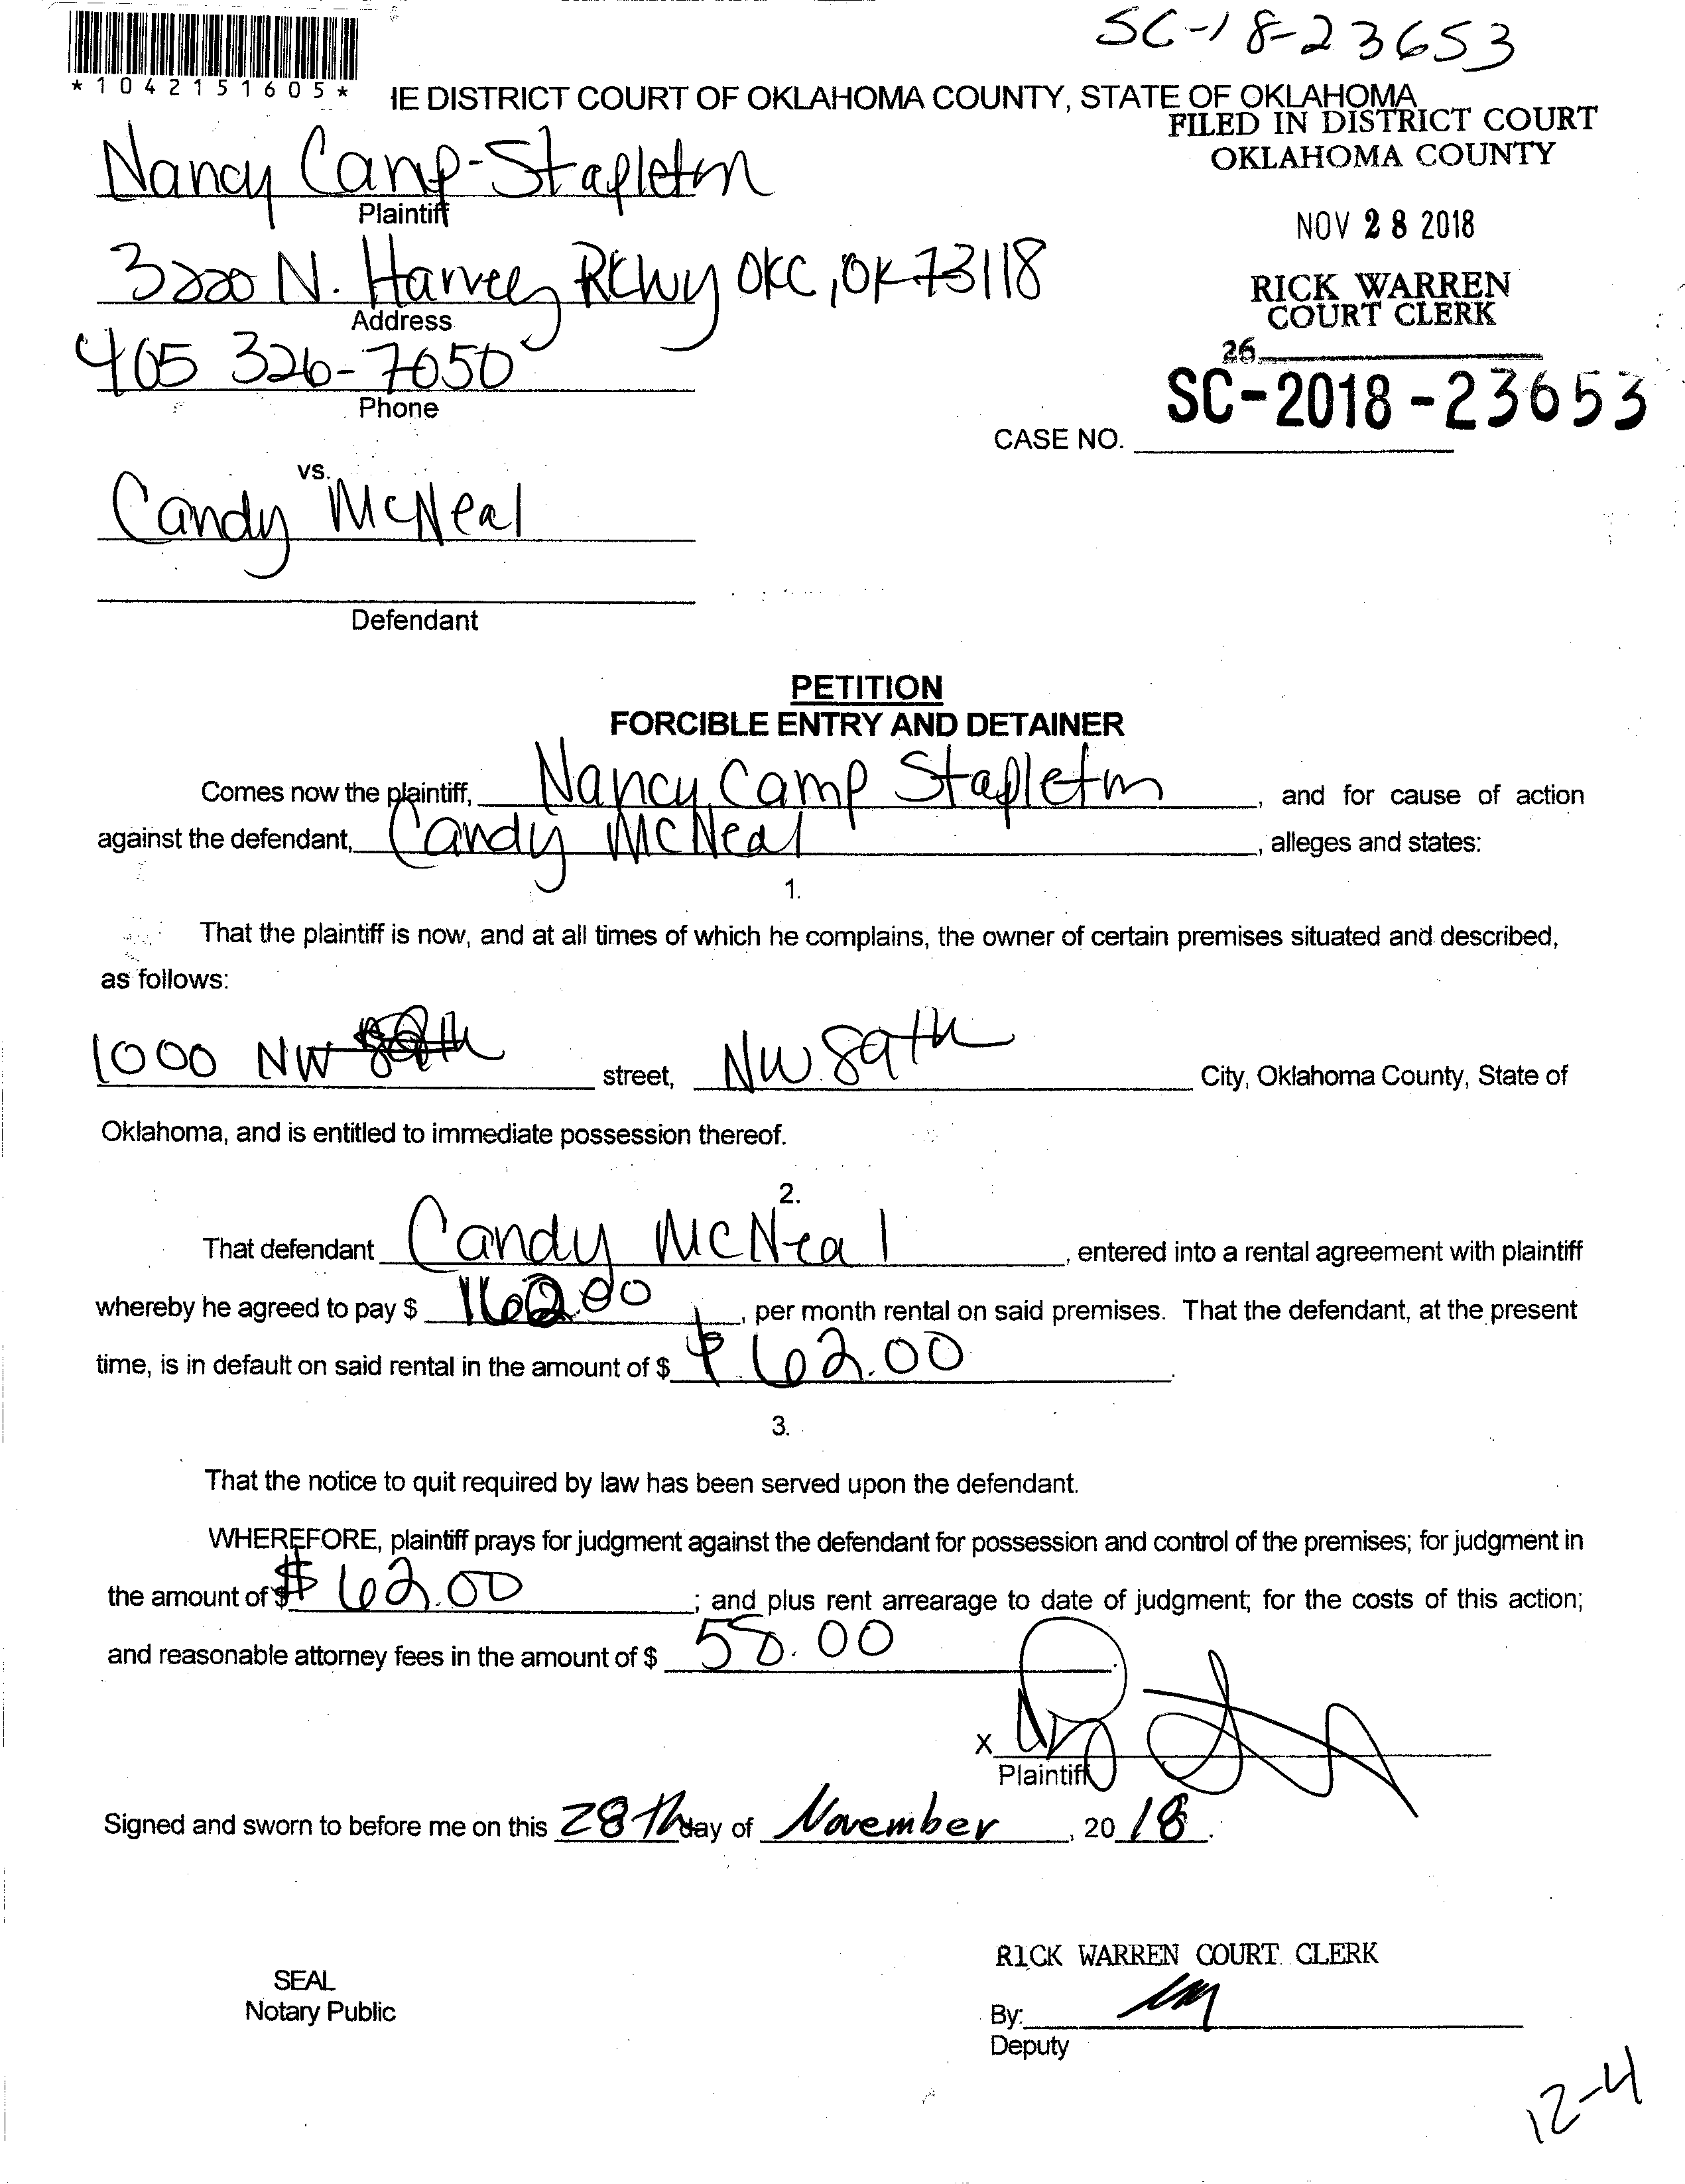 SC-18-23653
*1042151605*
IE DISTRICT COURT OF OKLAHOMA COUNTY, STATE OF OKLAHOMA
FILED IN DISTRICT COURT
OKLAHOMA COUNTY
Nancy Camp-Stapleton
Plaintiff
NOV 28 2018
3220 N. Harvey Pkwy OKC, OK 73118
Address
RICK WARREN
COURT CLERK
405 326-7050
Phone
26
SC-2018-23653
CASE NO.
vs.
Candy McNeal
Defendant
PETITION
FORCIBLE ENTRY AND DETAINER
Comes now the plaintiff, Nancy Camp Stapleton, and for cause of action
against the defendant, Candy McNeal, alleges and states:
1.
That the plaintiff is now, and at all times of which he complains, the owner of certain premises situated and described,
as follows:
1000 NW street, NW 89th City, Oklahoma County, State of
Oklahoma, and is entitled to immediate possession thereof.
2.
That defendant Candy McNeal, entered into a rental agreement with plaintiff
whereby he agreed to pay $ 162.00, per month rental on said premises. That the defendant, at the present
time, is in default on said rental in the amount of $ $62.00.
3.
That the notice to quit required by law has been served upon the defendant.
WHEREFORE, plaintiff prays for judgment against the defendant for possession and control of the premises; for judgment in
the amount of $ $62.00; and plus rent arrearage to date of judgment; for the costs of this action;
and reasonable attorney fees in the amount of $ 58.00
X
Plaintiff
Signed and sworn to before me on this 28th day of November, 2018.
RICK WARREN COURT CLERK
SEAL
Notary Public
By:
Deputy
12-4